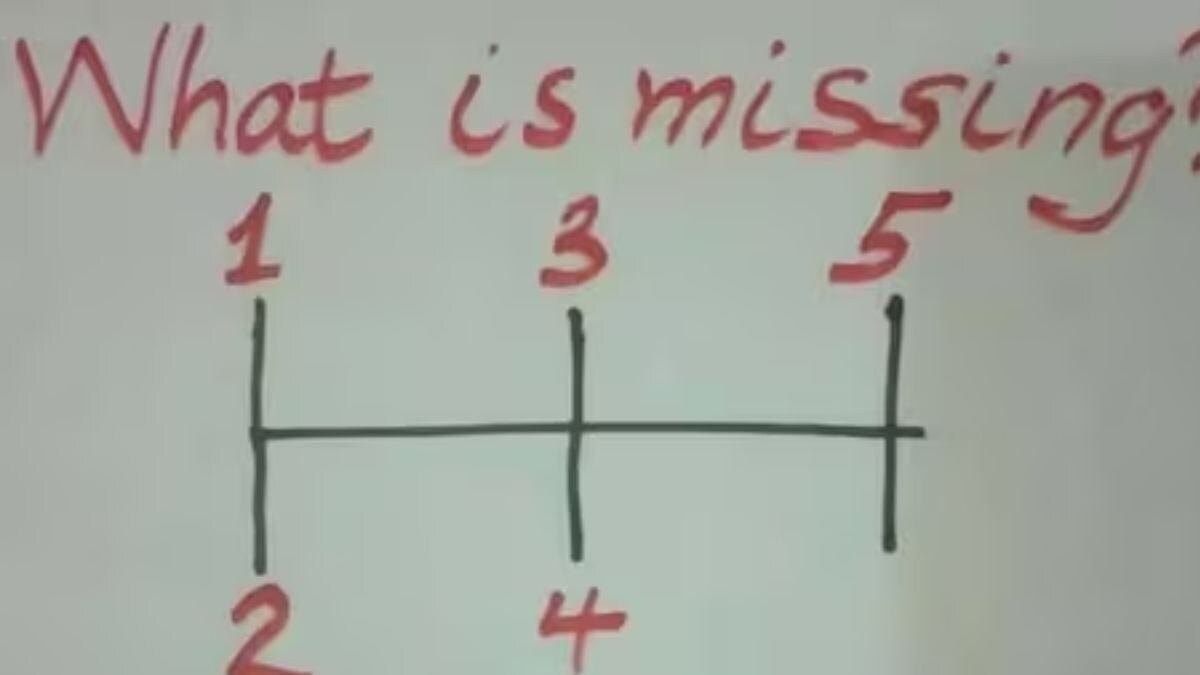 What is missing?
1 3 5
2 4